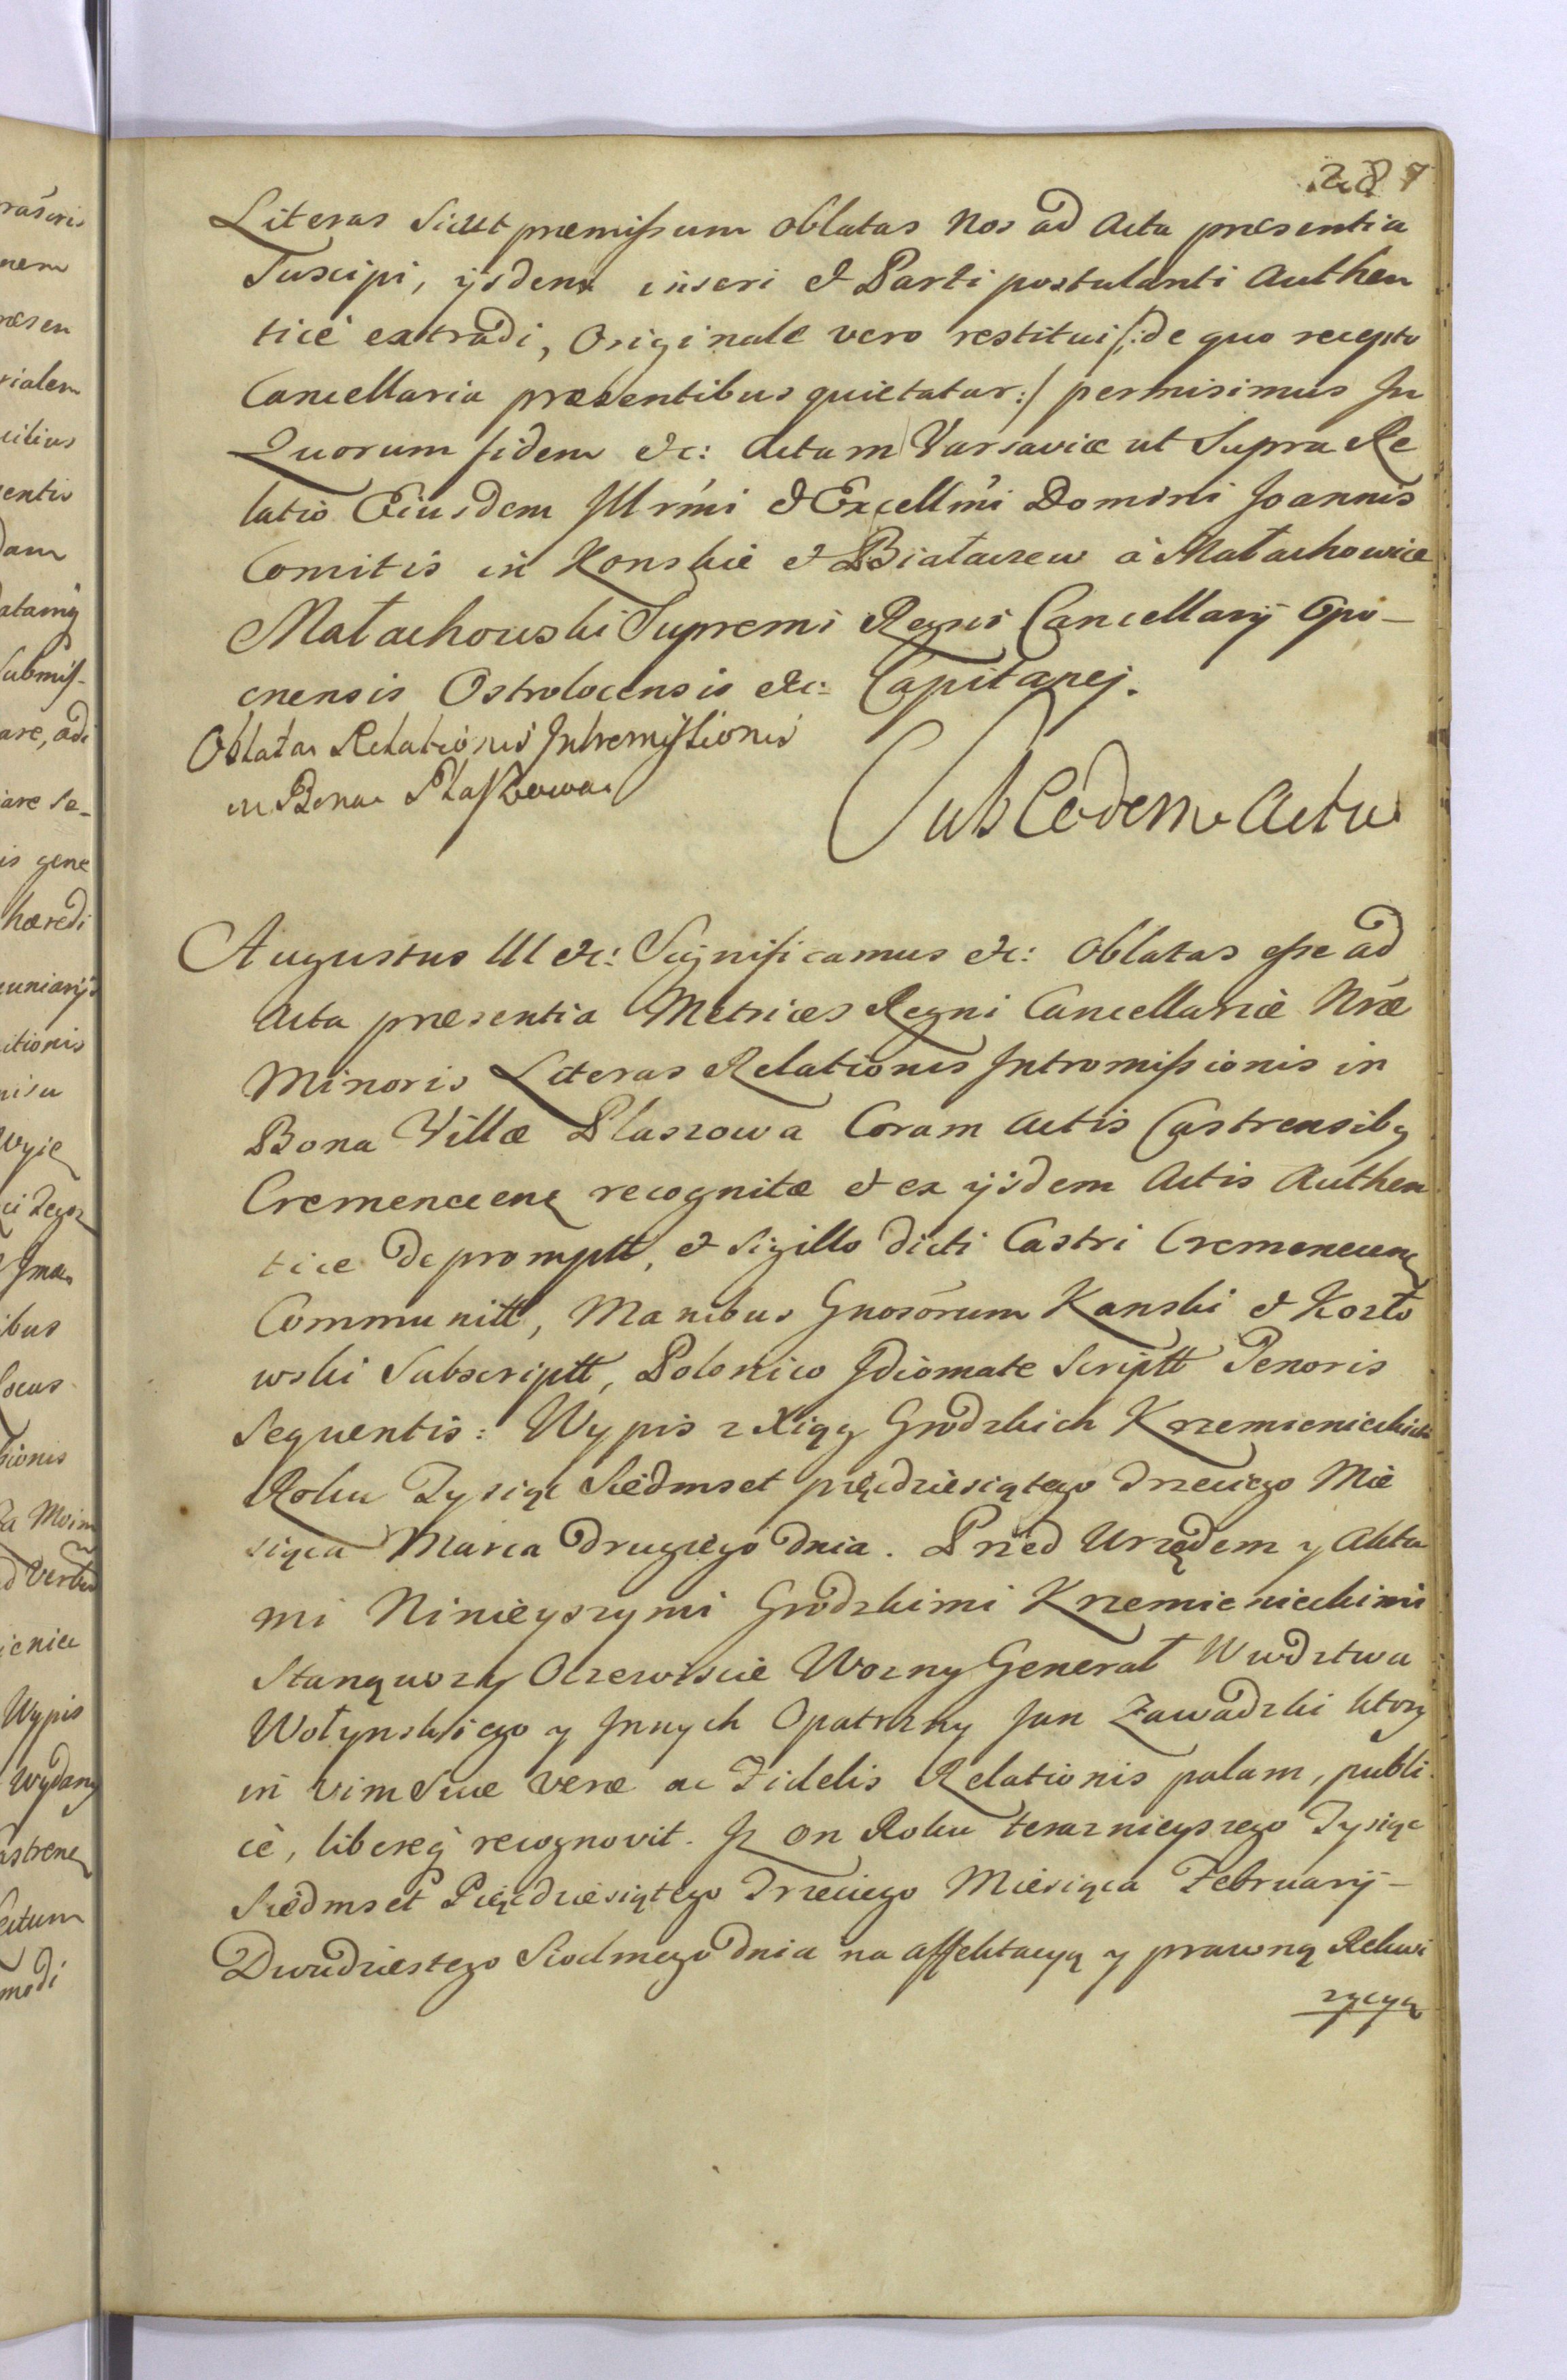 287
Literas Sicut præmissum oblatas Nos ad Acta præsentia
Suscipi, ijsdem inseri & Parti postulanti Authen
ticè extradi, Originale vero restitui /:de quo recepto
Cancellaria præsentibus quietatur:/ permisimus In
Quorum fidem &c: Actum Varsaviæ ut Supra Re
latio Eiusdem Illrmi & Excellmi Domini Joannis
Comitis in Konskie & Białaczew à Małachowice
Małachowski Supremi Regni Cancellarij Opo-
cnensis Ostrolocensis &c: Capitanej.
Oblata Relationis Intromissionis
in Bona Płaszowa
Sub Eodem Actu
Augustus III &c: Significamus &c: Oblatas esse ad
Acta præsentia Metrices Regni Cancellariæ Nræ
Minoris Literas Relationis Intromissionis in
Bona Villæ Płaszowa Coram Actis Castrensibq
Cremenecenq recognitæ & ex ijsdem Actis Authen
tice depromptt, & Sigillo dicti Castri Cremenecenq
Communitt, Manibus Gnosorum Kanski & Kozło
wski Subscriptt, Polonico Idiomate Scriptt Tenoris
Sequentis: Wypis z Xiąg Grodzkich Krzemienieckich
Roku Tysiąc Siedmset pięcdziesiątego Trzeciego Mie
siąca Marca Drugiego dnia. Przed Urzędem y Akta
mi Ninieyszymi Grodzkimi Krzemienieckimi
Stanąwszy Oczewiscie Wozny Generał Wwdztwa
Wołynskiego y Innych Opatrzny Jan Zawadzki ktory
in vim Suæ Veræ ac Fidelis Relationis palam, publi
cè, libereq́ recognovit. Iz on Roku terazznieyszego Tysiąc
Siedmset Pięcdziesiątego Trzeciego Miesiąca Februarij-
Dwudziestego Siodmego dnia na affektacyą y prawną Rekwi
zycyą